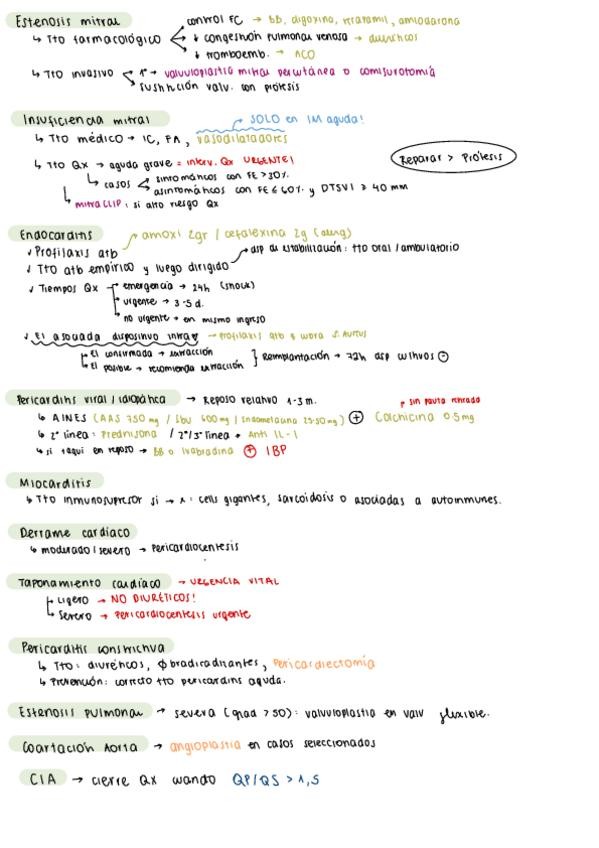 Estenosis mitral
↳ Tto farmacológico
control FC → BB, digoxina, verapamil, amiodarona
↓ congestión pulmonar venosa → diuréticos
↓ tromboemb. → ACO
↳ Tto invasivo
1º → valvuloplastia mitral percutánea o comisurotomía
sustitución valv. con prótesis
Insuficiencia mitral
SOLO en IM aguda!
↳ Tto médico → IC, FA, vasodilatadores
Reparar > Prótesis
↳ Tto Qx → aguda grave = interv. Qx URGENTE!
↳ casos
sintomáticos con FE > 30%
asintomáticos con FE ≤ 60% y DTSVI ≥ 40 mm
↳ mitraCLIP: si alto riesgo Qx
Endocarditis
✓ Profilaxis atb → amoxi 2gr / cefalexina 2g (alerg)
✓ Tto atb empírico y luego dirigido → dsp de estabilización: tto oral / ambulatorio
✓ Tiempos Qx
emergencia → 24h (shock)
urgente → 3-5 d.
no urgente → en mismo ingreso
✓ EI asociada dispositivo intrav → profilaxis atb q cubra S. Aureus
EI confirmada → extracción
EI posible → recomienda extracción
Reimplantación → 72h dsp cultivos ⊖
Pericarditis viral / idiopática → Reposo relativo 1-3 m.
* sin pauta retirada
↳ AINES (AAS 750 mg / Ibu 600 mg / Indometacina 25-50 mg) ⊕ Colchicina 0.5 mg
↳ 2ª línea: Prednisona / 2ª/3ª línea → Anti IL-1
↳ si taqui en reposo → BB o Ivabradina ⊕ IBP
Miocarditis
↳ Tto inmunosupresor si → : cells gigantes, sarcoidosis o asociadas a autoinmunes.
Derrame cardíaco
↳ moderado / severo → Pericardiocentesis
Taponamiento cardíaco → URGENCIA VITAL
Ligero → NO DIURÉTICOS!
Severo → Pericardiocentesis urgente
Pericarditis constrictiva
↳ Tto: diuréticos, ɸ bradicardizantes, Pericardiectomía
↳ Prevención: correcto tto pericarditis aguda.
Estenosis pulmonar → severa (grad > 50): valvuloplastia en valv flexible.
Coartación Aorta → angioplastia en casos seleccionados
CIA → cierre Qx cuando QP/QS > 1,5